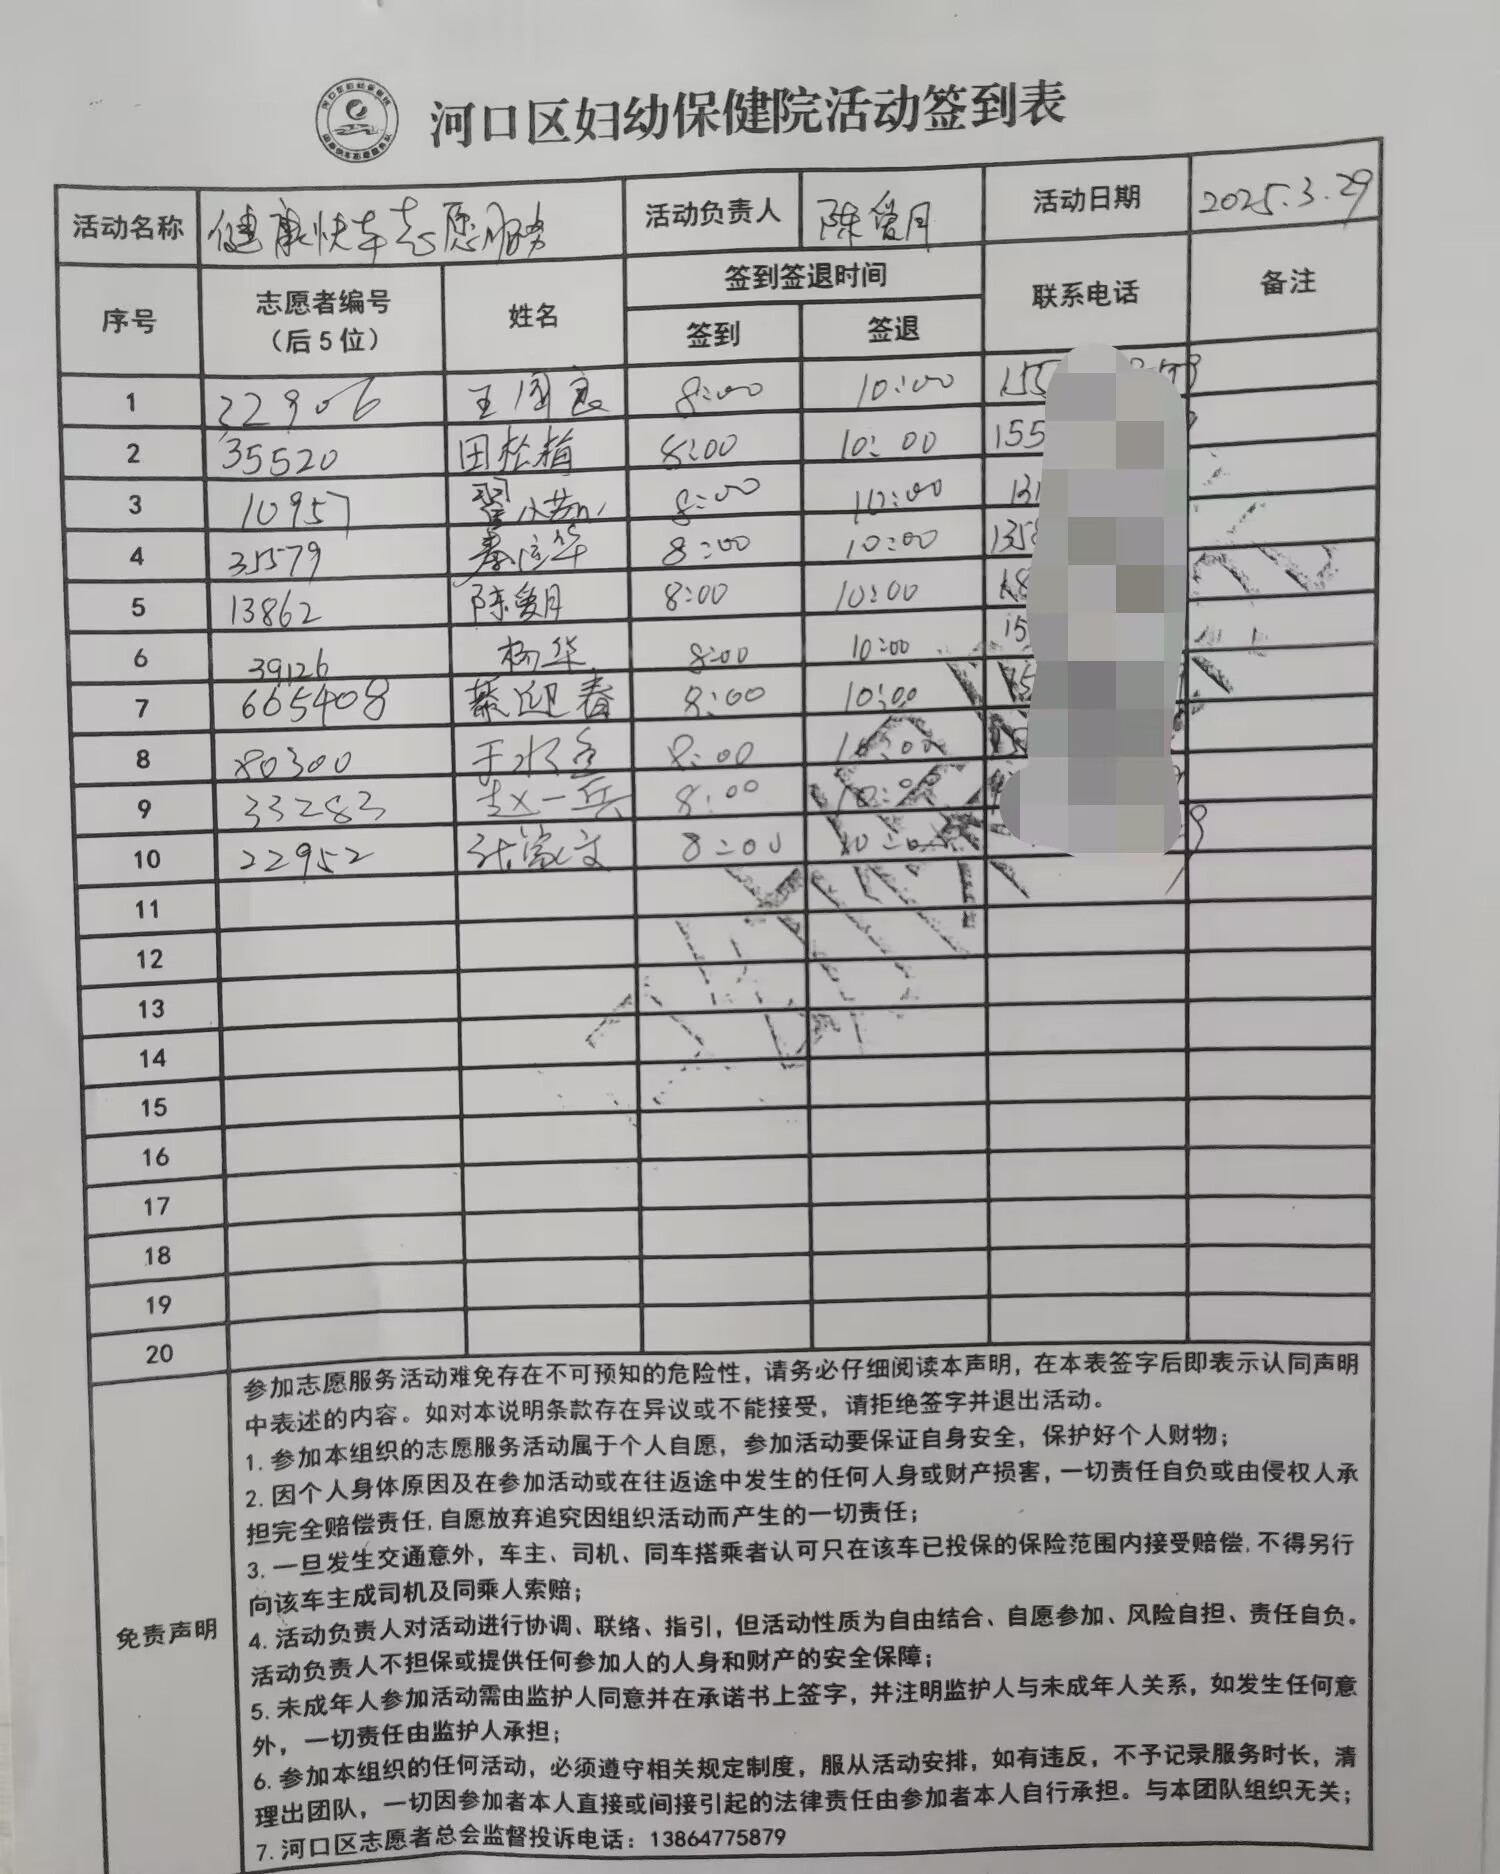 河口区妇幼保健院活动签到表
活动名称 健康快车志愿服务 活动负责人 陈爱月 活动日期 2025.3.29
序号 志愿者编号（后5位） 姓名 签到签退时间 联系电话 备注
签到 签退
1 32906 王国良 8:00 10:00 155
2 35520 田松梅 8:00 10:00 155
3 10957 8:00 10:00
4 31579 秦洪华 8:00 10:00 1358
5 13862 陈爱月 8:00 10:00 18
6 39126 杨华 8:00 10:00 15
7 665408 綦迎春 8:00 10:00 15
8 80300 于水 8:00 10:00
9 33283 赵一兵 8:00 10:00
10 22952 张 文 8:00 10:00
11
12
13
14
15
16
17
18
19
20
免责声明
参加志愿服务活动难免存在不可预知的危险性，请务必仔细阅读本声明，在本表签字后即表示认同声明
中表述的内容。如对本说明条款存在异议或不能接受，请拒绝签字并退出活动。
1.参加本组织的志愿服务活动属于个人自愿，参加活动要保证自身安全，保护好个人财物；
2.因个人身体原因及在参加活动或在往返途中发生的任何人身或财产损害，一切责任自负或由侵权人承
担完全赔偿责任,自愿放弃追究因组织活动而产生的一切责任；
3.一旦发生交通意外，车主、司机、同车搭乘者认可只在该车已投保的保险范围内接受赔偿,不得另行
向该车主成司机及同乘人索赔；
4.活动负责人对活动进行协调、联络、指引，但活动性质为自由结合、自愿参加、风险自担、责任自负。
活动负责人不担保或提供任何参加人的人身和财产的安全保障；
5.未成年人参加活动需由监护人同意并在承诺书上签字，并注明监护人与未成年人关系，如发生任何意
外，一切责任由监护人承担；
6.参加本组织的任何活动，必须遵守相关规定制度，服从活动安排，如有违反，不予记录服务时长，清
理出团队，一切因参加者本人直接或间接引起的法律责任由参加者本人自行承担。与本团队组织无关；
7.河口区志愿者总会监督投诉电话：13864775879